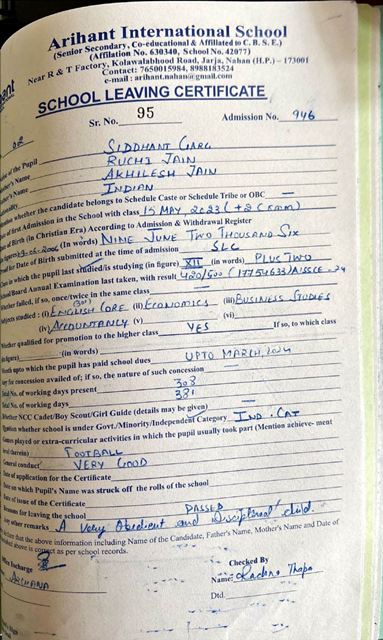 Arihant International School
(Senior Secondary, Co-educational & Affiliated to C. B. S. E.)
(Affilation No. 630340, School No. 42077)
Near R & T Factory, Kolawalabhood Road, Jarja, Nahan (H.P.) – 173001
Contact: 7650015984, 8988183524
e-mail : arihant.nahan@gmail.com
SCHOOL LEAVING CERTIFICATE
Sr. No. 95 Admission No. 946
of the Pupil SIDDHANT GARG
Name RUCHI JAIN
Name AKHILESH JAIN
INDIAN
whether the candidate belongs to Schedule Caste or Schedule Tribe or OBC —
of first Admission in the School with class 15 MAY, 2023 (+2 Comm)
of Birth (in Christian Era) According to Admission & Withdrawal Register
(in figure) 9-06-2006 (In words) NINE JUNE TWO THOUSAND SIX
for Date of Birth submitted at the time of admission SLC
in which the pupil last studied/is studying (in figure) XII (in words) PLUS TWO
School/Board Annual Examination last taken, with result 420/500 (17754633) AISSCE-24
Whether failed, if so, once/twice in the same class —
Subjects studied : (i) ENGLISH CORE (301) (ii) ECONOMICS (iii) BUSINESS STUDIES
(iv) ACCOUNTANCY (v) (vi)
Whether qualified for promotion to the higher class YES If so, to which class
figure) (in words)
Month upto which the pupil has paid school dues UPTO MARCH, 2024
Any fee concession availed of; if so, the nature of such concession —
Total No. of working days present 308
Total No. of working days 381
Whether NCC Cadet/Boy Scout/Girl Guide (details may be given) —
whether school is under Govt./Minority/Independent Category IND. CAT
Games played or extra-curricular activities in which the pupil usually took part (Mention achieve- ment
therein) FOOTBALL
General conduct VERY GOOD
Date of application for the Certificate
Date on which Pupil's Name was struck off the rolls of the school
Date of issue of the Certificate
Reasons for leaving the school PASSED
Any other remarks A Very Obedient and Disciplined child.
declare that the above information including Name of the Candidate, Father's Name, Mother's Name and Date of
above is correct as per school records.
Incharge Checked By
ARCHANA Name: Rachna Thapa
Dtd.